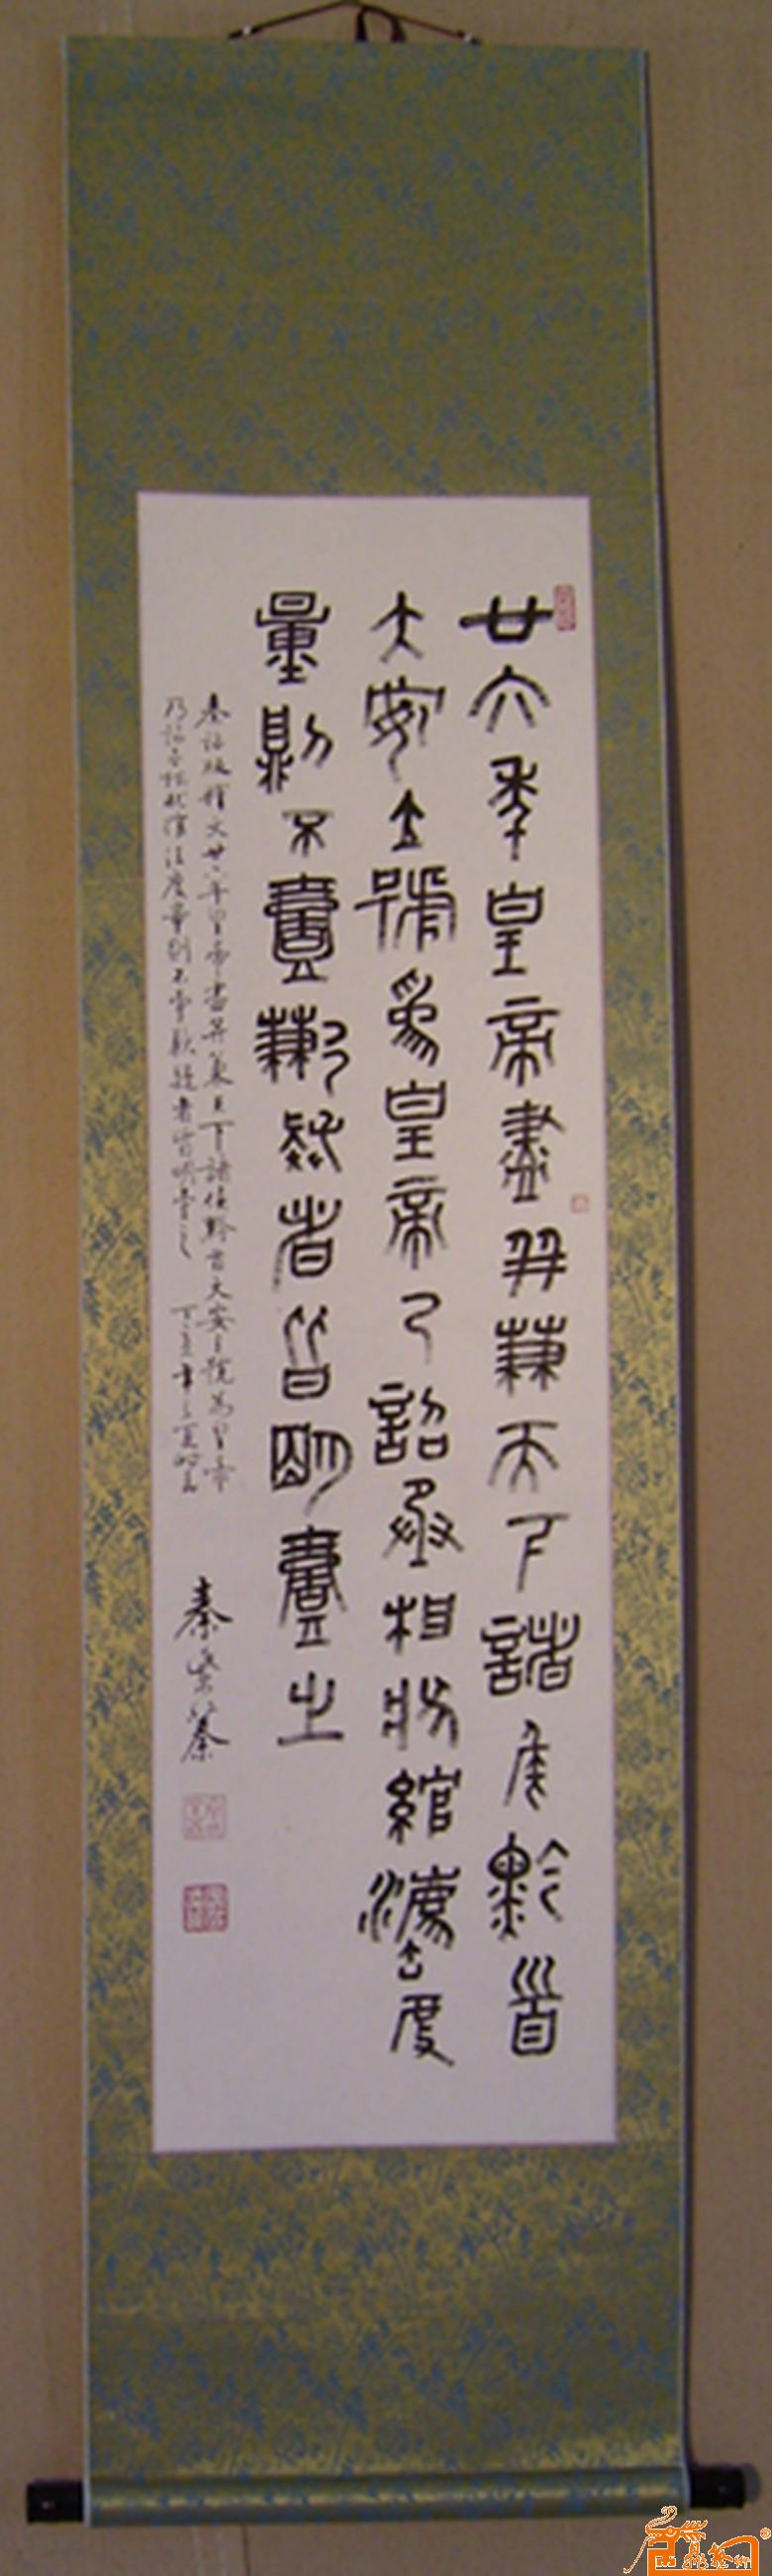 廿六年皇帝盡并兼天下諸侯黔首
大安立號為皇帝乃詔丞相狀綰灋度
量則不壹歉疑者皆明壹之
秦詔版釋文廿六年皇帝盡并兼天下諸侯黔首大安立號為皇帝
乃詔丞相狀綰法度量則不壹歉疑者皆明壹之 丁亥年之夏
秦紫蓁